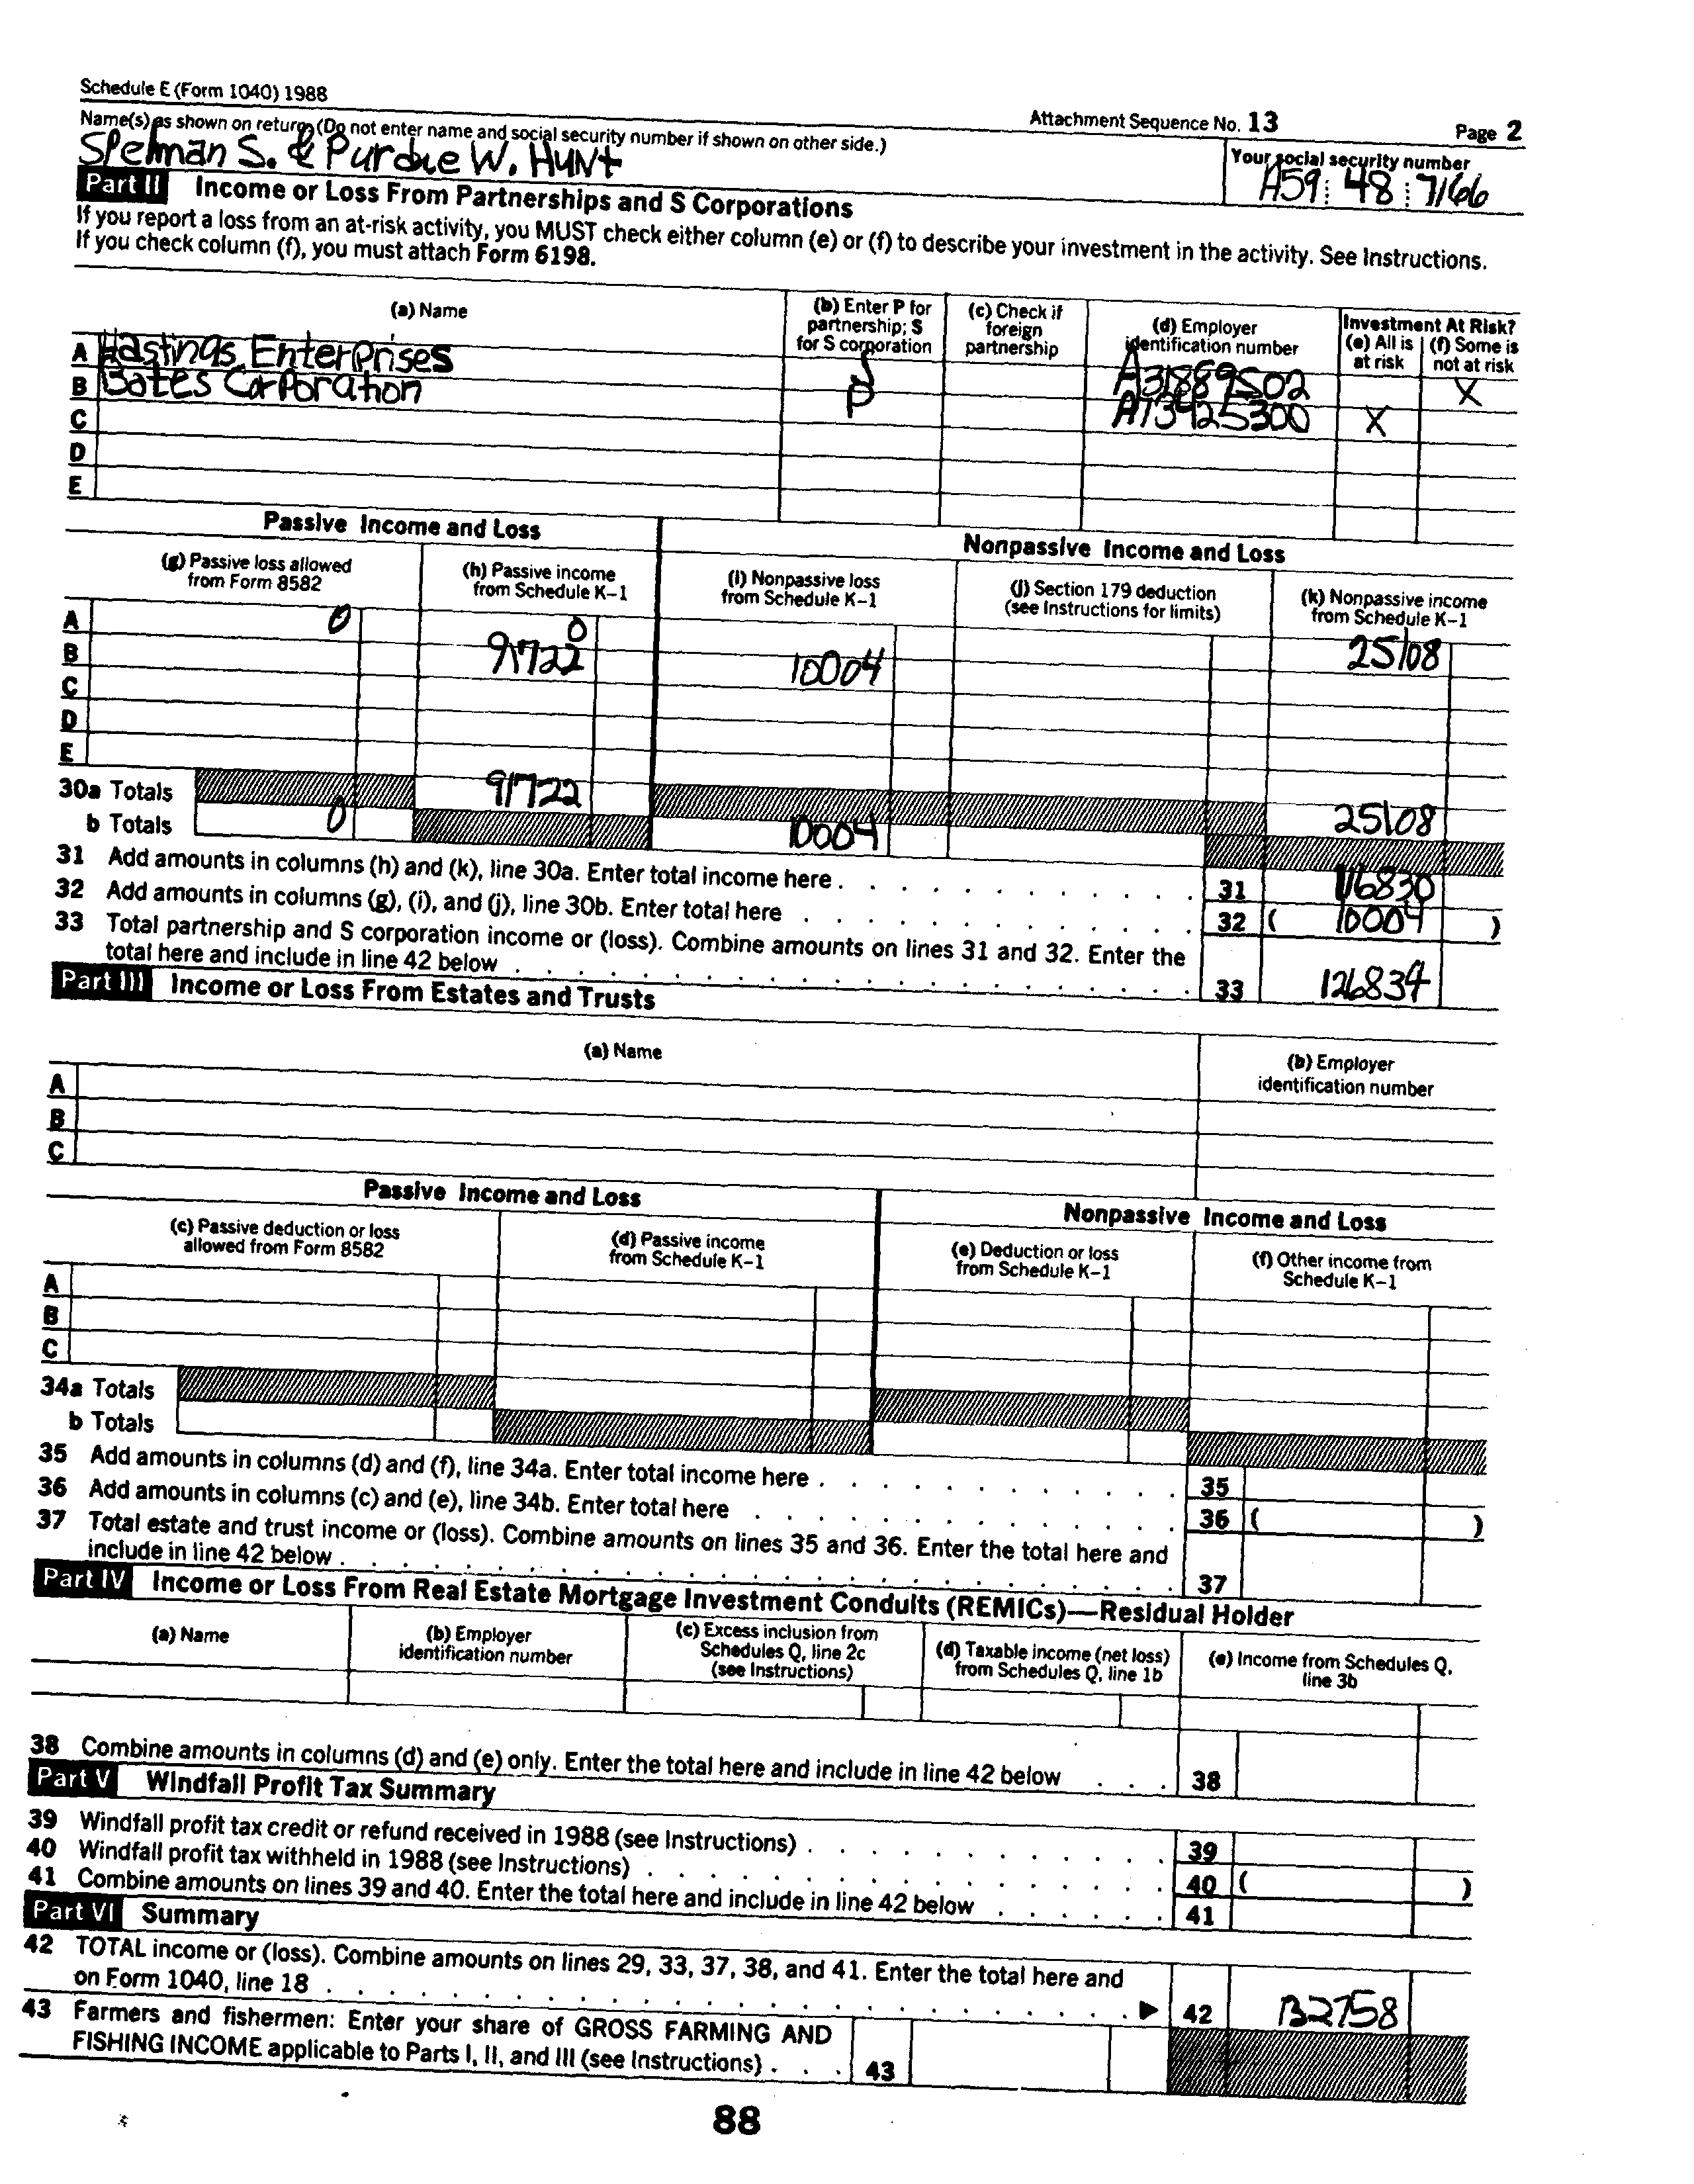 Schedule E (Form 1040) 1988
Attachment Sequence No. 13
Page 2
Name(s) as shown on return (Do not enter name and social security number if shown on other side.)
Your social security number
Spelman S. & Purdue W. Hunt
A59 48 7166
Part II Income or Loss From Partnerships and S Corporations
If you report a loss from an at-risk activity, you MUST check either column (e) or (f) to describe your investment in the activity. See Instructions.
If you check column (f), you must attach Form 6198.
(a) Name
(b) Enter P for partnership; S for S corporation
(c) Check if foreign partnership
(d) Employer identification number
Investment At Risk?
(e) All is at risk
(f) Some is not at risk
A Hastings Enterprises S A31889502 X
B Bates Corporation P A13425300 X
C
D
E
Passive Income and Loss
Nonpassive Income and Loss
(g) Passive loss allowed from Form 8582
(h) Passive income from Schedule K-1
(i) Nonpassive loss from Schedule K-1
(j) Section 179 deduction (see Instructions for limits)
(k) Nonpassive income from Schedule K-1
A 0 0 25108
B 91722 10004
C
D
E
30a Totals 91722 25108
b Totals 0 10004
31 Add amounts in columns (h) and (k), line 30a. Enter total income here . 31 116830
32 Add amounts in columns (g), (i), and (j), line 30b. Enter total here 32 ( 10004 )
33 Total partnership and S corporation income or (loss). Combine amounts on lines 31 and 32. Enter the
total here and include in line 42 below 33 126834
Part III Income or Loss From Estates and Trusts
(a) Name
(b) Employer identification number
A
B
C
Passive Income and Loss
Nonpassive Income and Loss
(c) Passive deduction or loss allowed from Form 8582
(d) Passive income from Schedule K-1
(e) Deduction or loss from Schedule K-1
(f) Other income from Schedule K-1
A
B
C
34a Totals
b Totals
35 Add amounts in columns (d) and (f), line 34a. Enter total income here . 35
36 Add amounts in columns (c) and (e), line 34b. Enter total here 36 ( )
37 Total estate and trust income or (loss). Combine amounts on lines 35 and 36. Enter the total here and
include in line 42 below . 37
Part IV Income or Loss From Real Estate Mortgage Investment Conduits (REMICs)—Residual Holder
(a) Name
(b) Employer identification number
(c) Excess inclusion from Schedules Q, line 2c (see Instructions)
(d) Taxable income (net loss) from Schedules Q, line 1b
(e) Income from Schedules Q, line 3b
38 Combine amounts in columns (d) and (e) only. Enter the total here and include in line 42 below 38
Part V Windfall Profit Tax Summary
39 Windfall profit tax credit or refund received in 1988 (see Instructions) . 39
40 Windfall profit tax withheld in 1988 (see Instructions) . 40 ( )
41 Combine amounts on lines 39 and 40. Enter the total here and include in line 42 below 41
Part VI Summary
42 TOTAL income or (loss). Combine amounts on lines 29, 33, 37, 38, and 41. Enter the total here and
on Form 1040, line 18 . ▶ 42 132758
43 Farmers and fishermen: Enter your share of GROSS FARMING AND
FISHING INCOME applicable to Parts I, II, and III (see Instructions) . 43
88